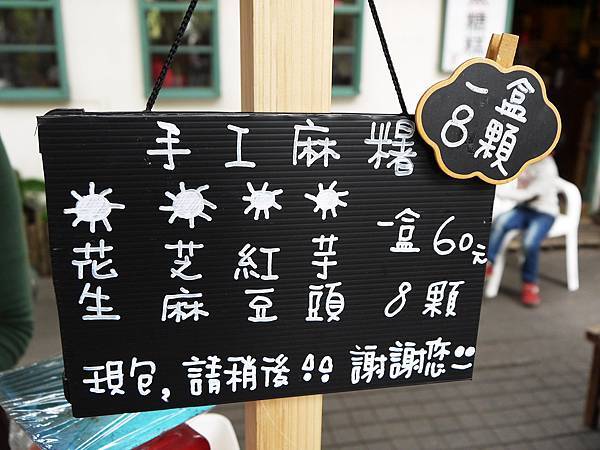 手工麻糬
花生 芝麻 紅豆 芋頭
一盒60元
8顆
現包,請稍後!! 謝謝您!!
一盒
8顆